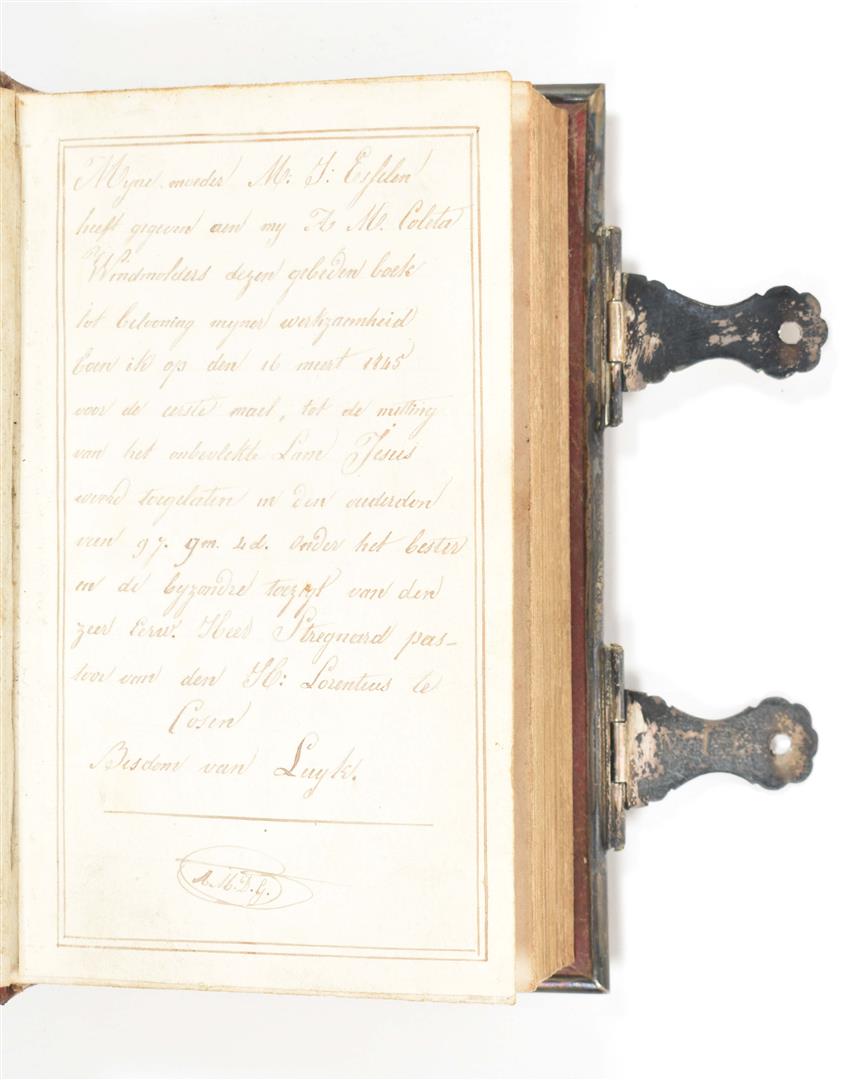 Myne moeder M: J: Esselen
heeft gegeven aen my A M. Coleta
Windmolders dezen gebeden boek
tot belooning myner werkzaamheid
toen ik op den 16 meert 1845
voor de eerste mael, tot de nutting
van het onbevlekte Lam Jesus
werd toegelaten in den ouderdom
van 9 j. 9m. 4d. onder het bester
en de byzondre toezigt van den
zeer Eerw. Heer Stregnard pas-
toor van den H: Lorentius te
Cosen
Bisdom van Luyk.
A.M.D.G.